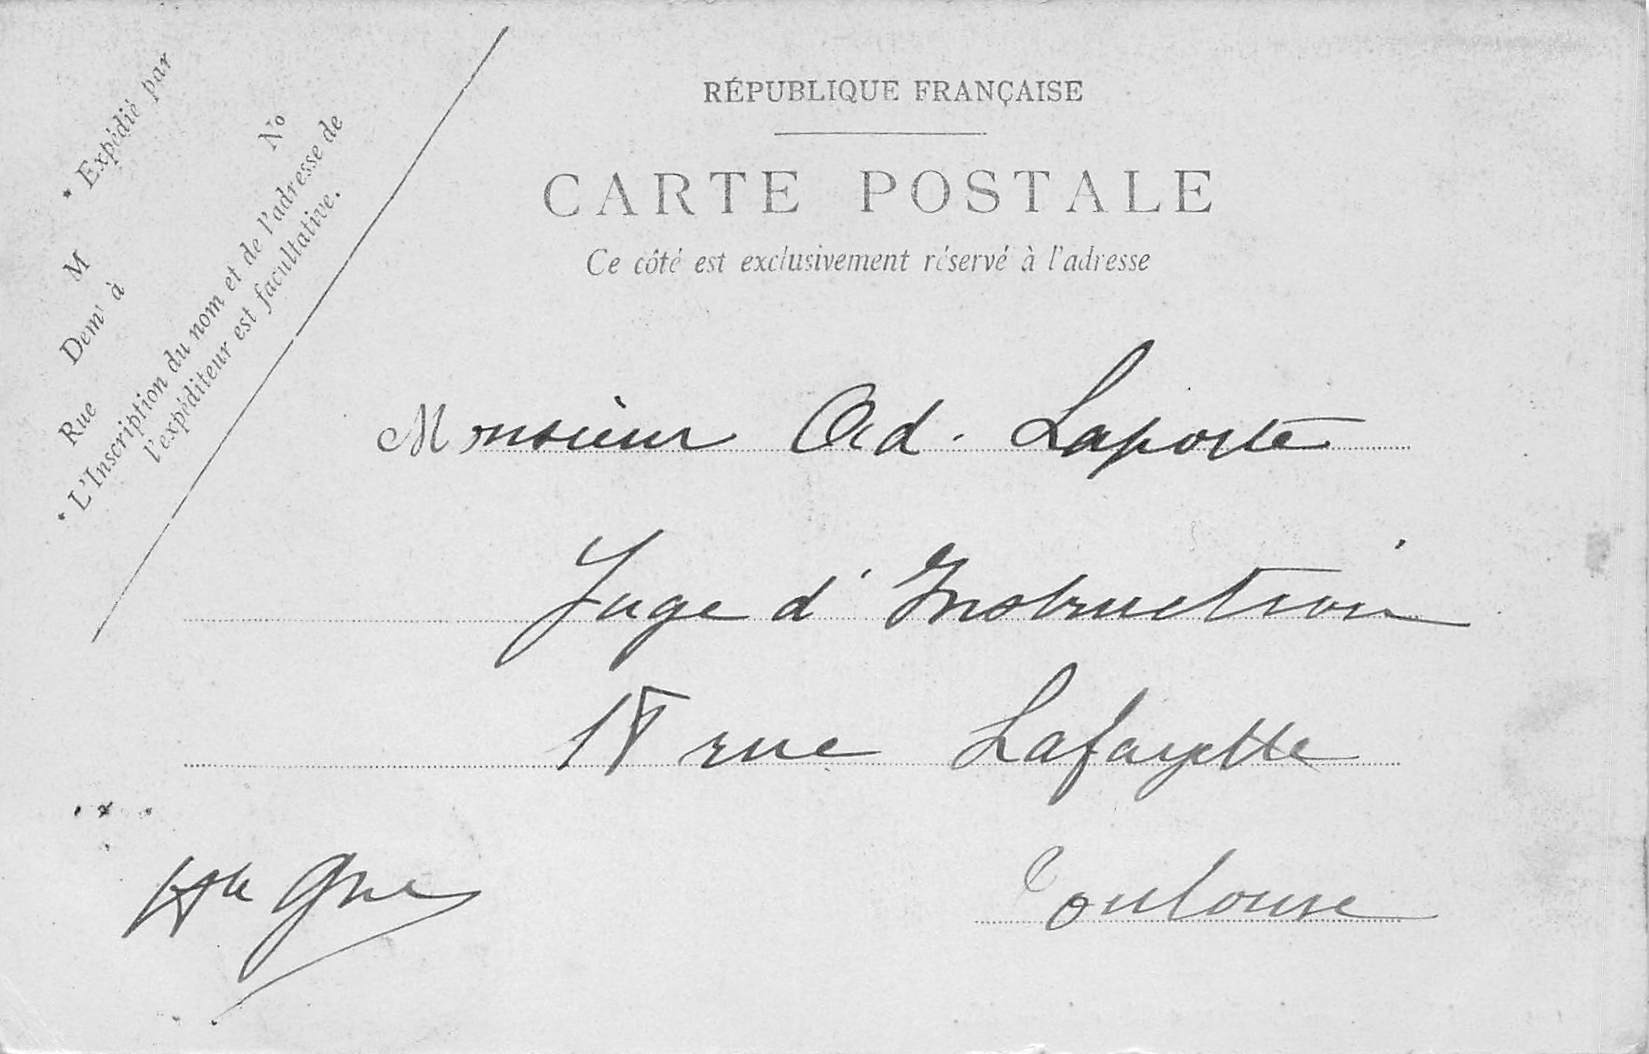 * Expédié par
M
Demt à
Rue N°
* L'Inscription du nom et de l'adresse de
l'expéditeur est facultative.
RÉPUBLIQUE FRANÇAISE
CARTE POSTALE
Ce côté est exclusivement réservé à l'adresse
Monsieur Ad. Laporte
Juge d'Instruction
rue Lafayette
Hte Gne
Toulouse